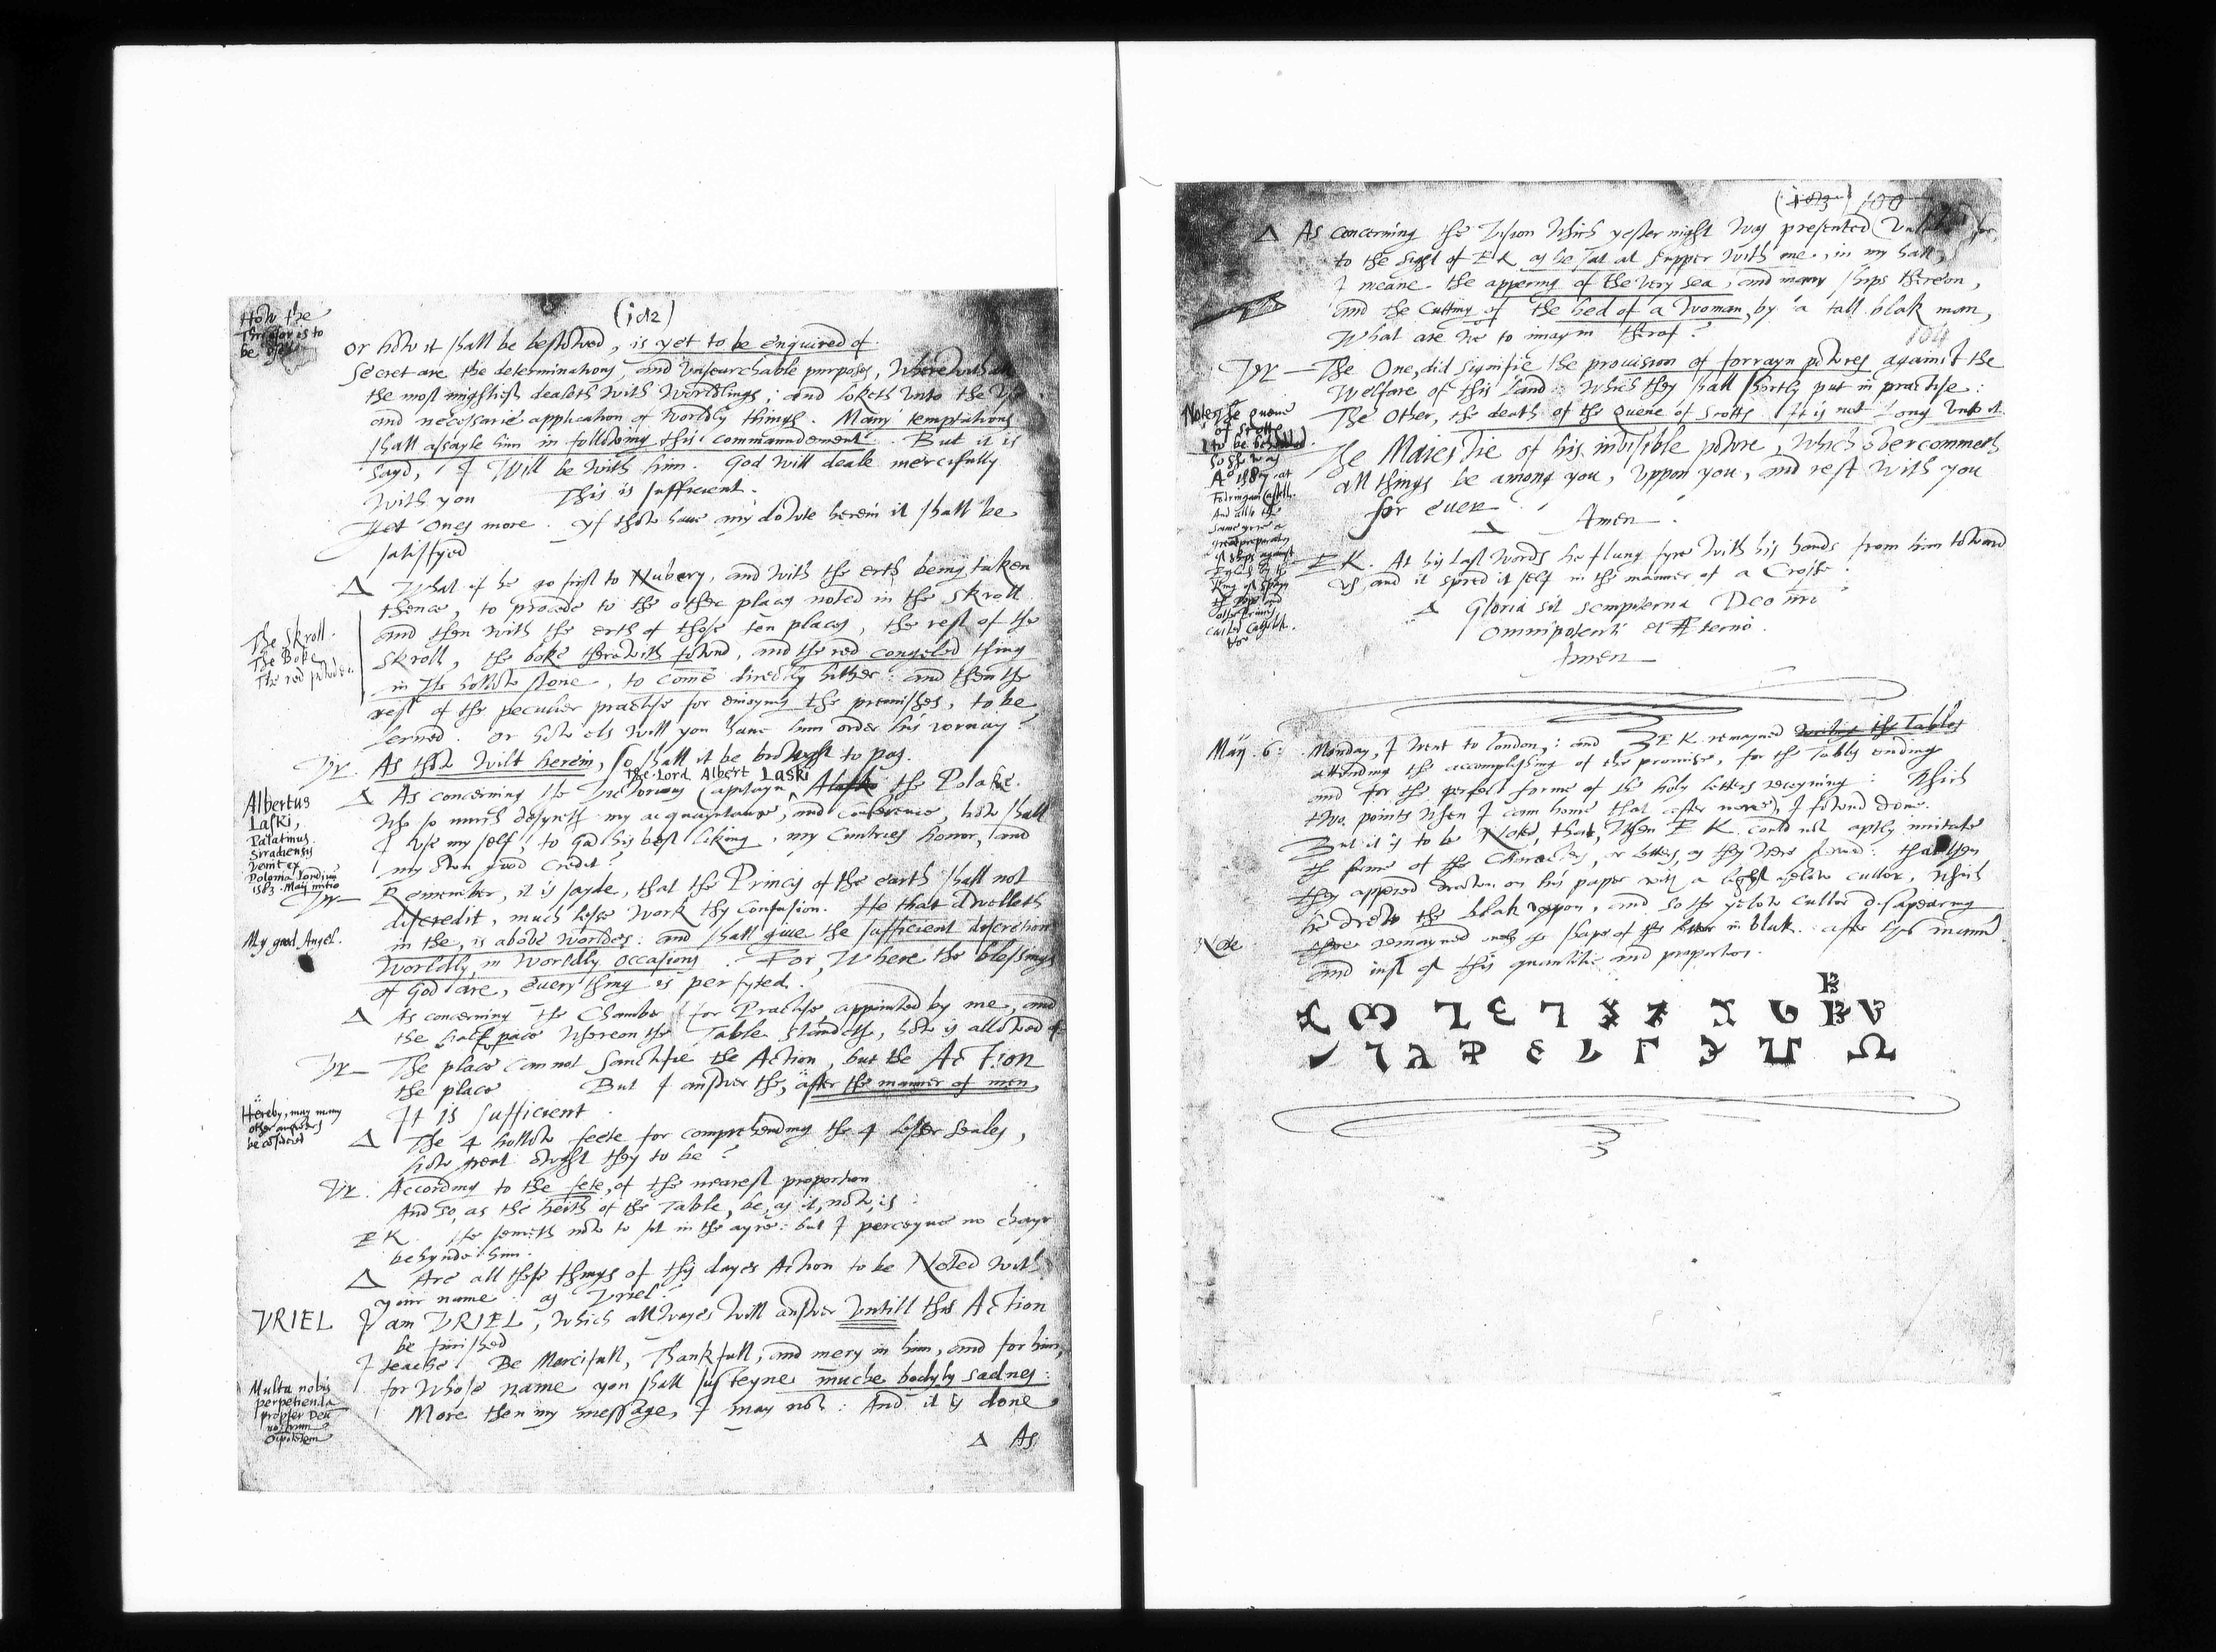 (102)
How the
Threasor is to
be used
or how it shall be bestowed, is yet to be enquired of.
Secret are the determinations, and unsearchable purposes, wherewithall
the most mightiest dealeth with worldlings; and loketh unto the use
and necessarie application of worldly things. Many temptations
shall assayle him in following this commaundement. But it is
sayd, I will be with him. God will deale mercifully
with you This is sufficient.
Yet ones more. Yf thow haue any dowte herein it shall be
satisfyed
Δ What if he go first to Nubery, and with the erth being taken
thence, to procede to the other places noted in the skroll
and then with the erth of those ten places, the rest of the
The skroll.
The Boke
The red powder.
skroll, the boke therewith fownd, and the red congeled thing
in the hollow stone, to come directly hither: and then the
rest of the peculier practise for enioyning the premisses, to be
lerned. or how els will you haue him order his iornay?
Ur. As thow wilt herein, so shall it be browght to pas.
The Lord Albert Laski
Δ As concerning the Victorious Captayn, Alasko the Polake.
who so much desyreth my acquayntance, and Conference, how shall
I use my self, to God his best liking, my Cuntries honor, and
my own good credit?
Albertus
Laski,
Palatinus
Siradiensis
venit ex
Polonia Londinū
1583. Maij initio
Ur— Remember, it is sayde, that the Princis of the earth shall not
discredit, much lesse work thy Confusion. He that dwelleth
in the, is aboue worldes: and shall giue the sufficient discretion
My good Angel.
worldly, in worldly occasions. For, where the blessings
of God are, euery thing is perfyted.
Δ As concerning The Chamber for Practise appointed by me, and
the half pace whereon the Table standeth, how is allowed of
Ur— The place can not sanctifie the Action, but the Action
the place But I answer the, after the manner of men,
It is sufficient.
Hereby, may many
other answers
be considered
Δ The 4 hollow feete for comprehending the 4 lesser seales,
how great owght they to be?
Ur. According to the fete, of the nearest proportion
And so, as the heith of the Table, be, as it, now, is:
EK. He semeth now to sit in the ayre: but I perceyue no chayr
behynde him.
Δ Are all these things of this dayes Action to be Noted with
your name, as Uriel?
URIEL I am URIEL, which allwayes will answer Untill this Action
be finished
I teache. Be Mercifull, Thankfull, and mery in him, and for him,
for whose name you shall susteyne muche bodyly sadnes:
More then my message, I may not: And it is done
Multa nobis
perpetienda
propter Deū
nostrum
Δ As
(103) 100
Δ As concerning the Vision which yester night was presented
to the sight of EK as he sat at supper with me, in my hall,
I meane the appering of the very sea, and many ships thereon,
and the Cutting of the hed of a woman, by a tall blak man,
What are we to imagin therof?
104
Ur— The One, did signifie the prouision of forrayn powres against the
Welfare of this Land: which they shall shortly put in practise:
The other, the death of the Quene of Scotts. It is not long unto it.
Note the Quene
of Scotts
to be beheded
So she was
Aº 1587 at
Fodringam Castell.
And allso the
same yere a
great preparation
of ships against
England by the
King of Spayn
the Pope and
other Princis
called Catholik
&c.
The Maiestie of his inuisible powre, which ouercommeth
all things be among you, uppon you, and rest with you
for euer
Δ Amen.
EK. At his last words he flung fyre with his hands from him toward
us, and it spred it self in the manner of a Crosse
Δ Gloria sit sempiterna Deo nr̄o
omnipotenti et Æterno.
Amen
May. 6: Monday, I went to London,: and EK remayned writing the Tables
attending the accomplishing of the promise, for the Tables ending
and for the perfect forme of the holy letters receyuing: Which
two points when I cam home that after none, I fownd done.
But it is to be Noted, that, When EK could not aptly imitate
the forme of the Characters, or letters, as they were shewed: that then
they appered drawn on his paper with a light yelow cullor, which
he drew the blak uppon, and so the yelow cullor disapearing
Note
there remayned onely the shape of the letter in blak. after this manner
and iust of this quantitie and proportion.